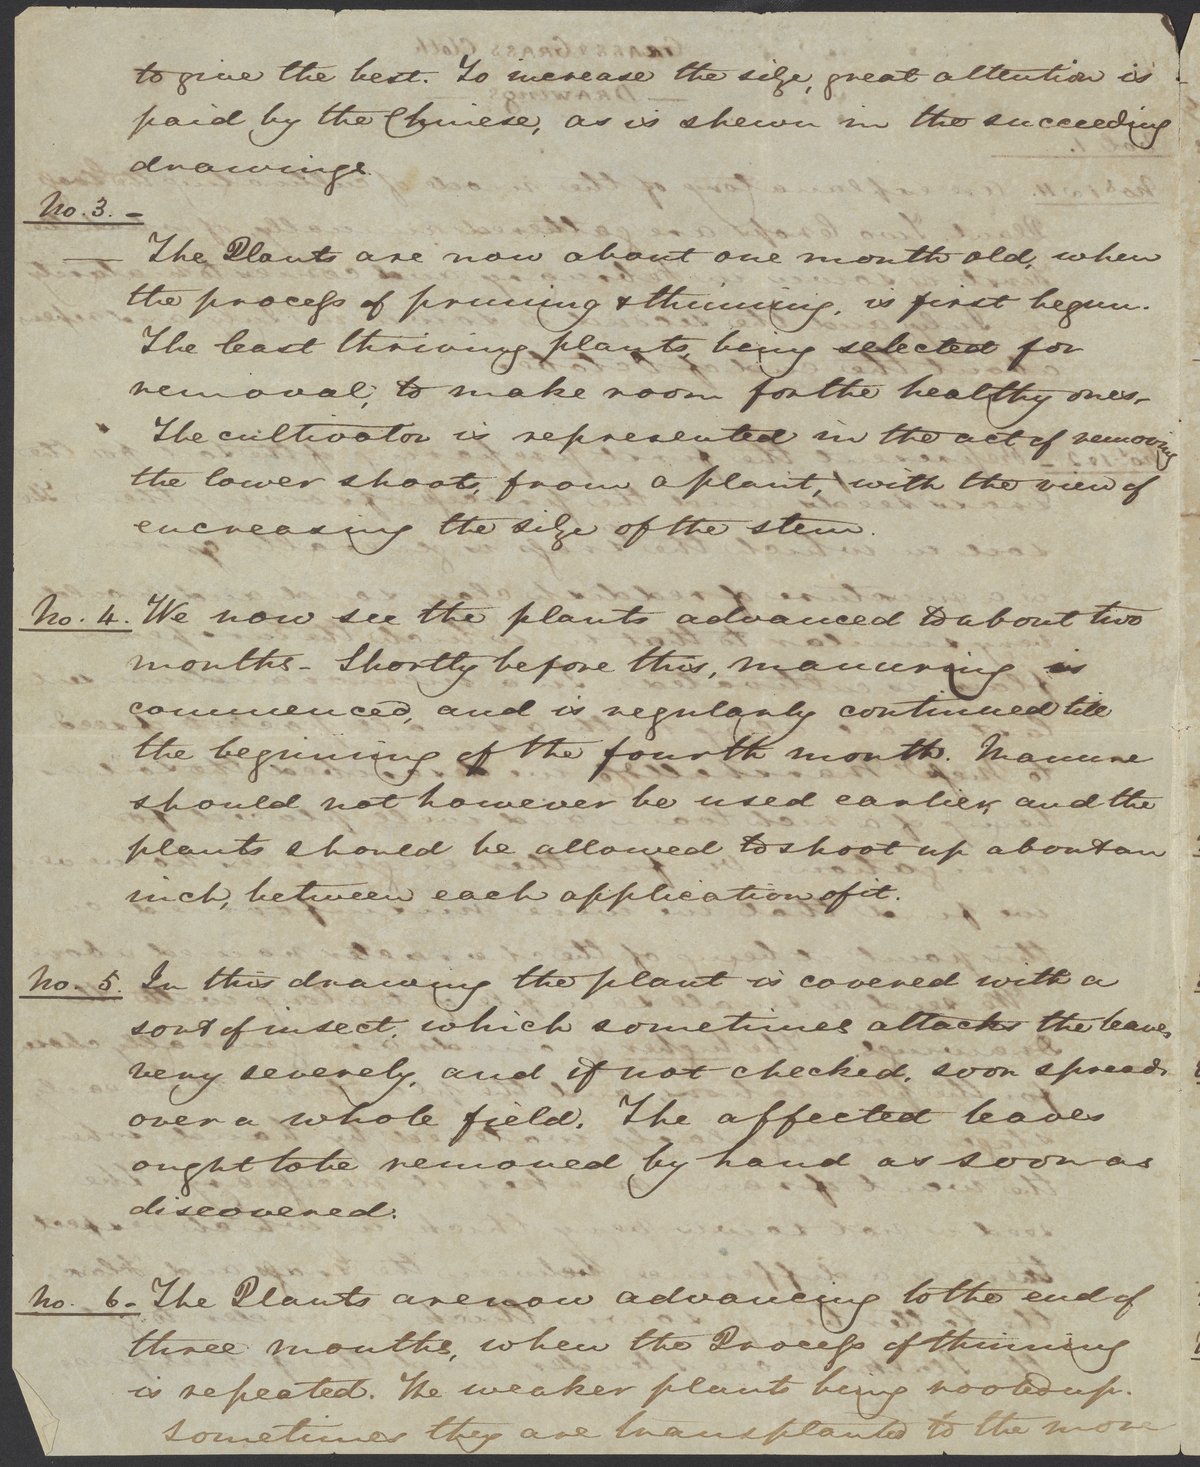 to give the best. To increase the size, great attention is
paid by the Chinese, as is shewn in the succeeding
drawings.
No. 3. -
— The Plants are now about one month old, when
the process of pruning & thinning, is first begun.
The least thriving plants, being selected for
removal, to make room for the healthy ones.
The cultivator is represented in the act of removing
the lower shoots, from a plant, with the view of
encreasing the size of the stem.
No. 4. We now see the plants advanced to about two
months - Shortly before this, manuring is
commenced, and is regularly continued till
the beginning of the fourth month. Manure
should not however be used earlier, and the
plants should be allowed to shoot up about an
inch, between each application of it.
No. 5. In this drawing the plant is covered with a
sort of insect, which sometimes attacks the leaves
very severely, and if not checked, soon spreads
over a whole field. The affected leaves
ought to be removed by hand as soon as
discovered.
No. 6 - The Plants are now advancing to the end of
three months, when the Process of thinning
is repeated. The weaker plants being rooted up.
Sometimes they are transplanted to the more